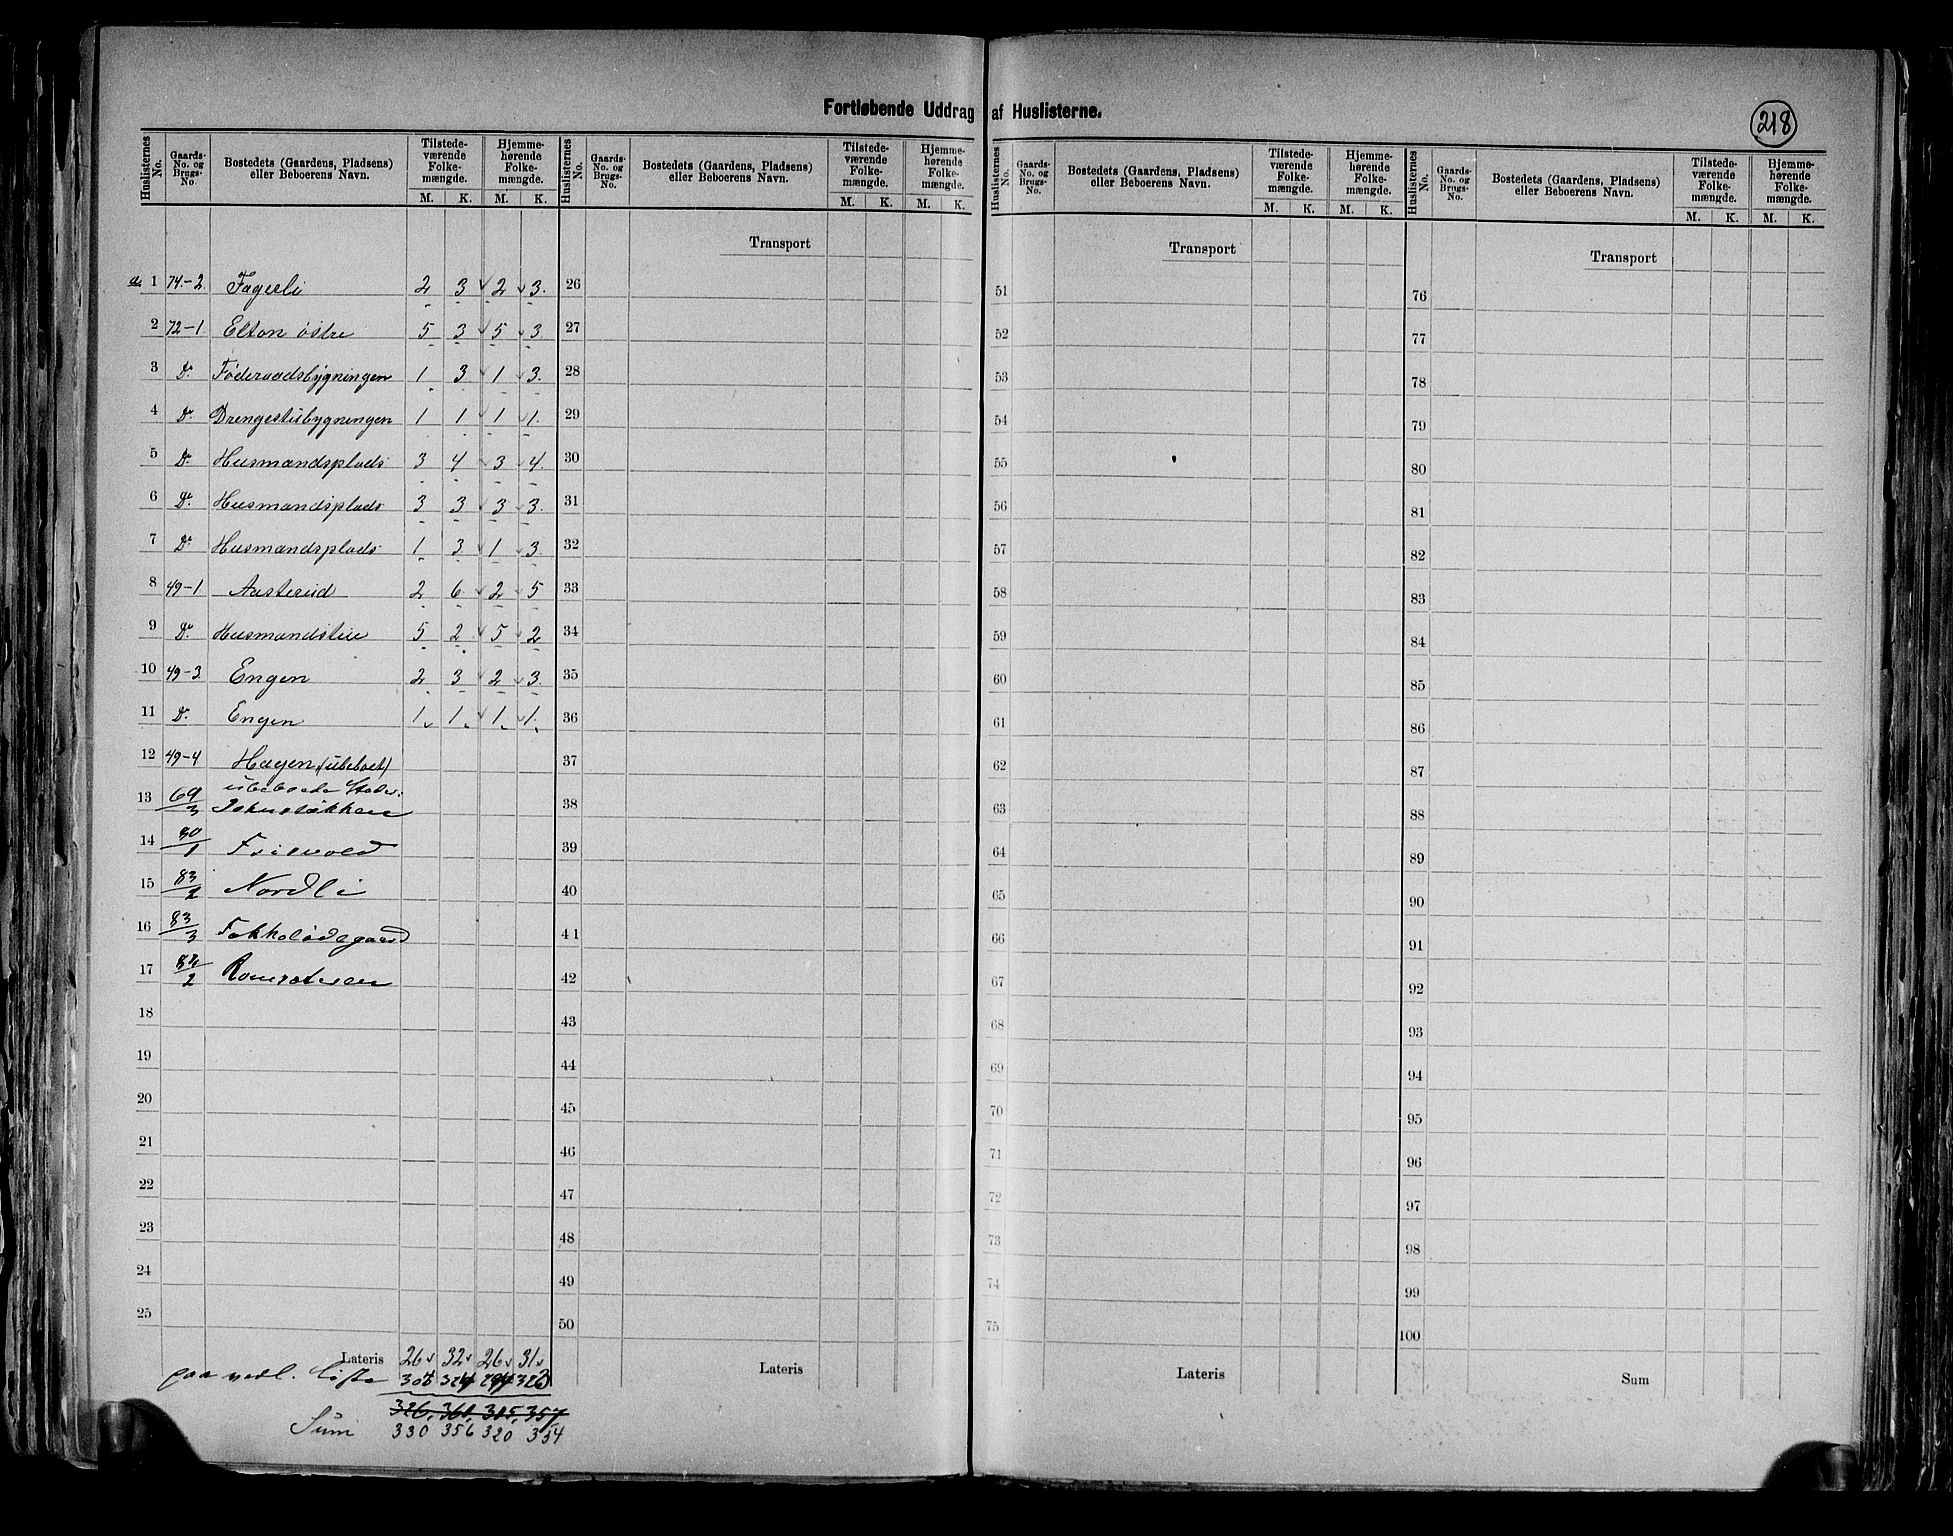 Fortløbende Uddrag af Huslisterne.
218
Huslisternes No. Gaards-No. og Brugs-No. Bostedets (Gaardens, Pladsens) eller Beboerens Navn. Tilstede-værende Folke-mængde. M. K. Hjemme-hørende Folke-mængde. M. K.
Huslisternes No. Gaards-No. og Brugs-No. Bostedets (Gaardens, Pladsens) eller Beboerens Navn. Tilstede-værende Folke-mængde. M. K. Hjemme-hørende Folke-mængde. M. K.
Huslisternes No. Gaards-No. og Brugs-No. Bostedets (Gaardens, Pladsens) eller Beboerens Navn. Tilstede-værende Folke-mængde. M. K. Hjemme-hørende Folke-mængde. M. K.
Huslisternes No. Gaards-No. og Brugs-No. Bostedets (Gaardens, Pladsens) eller Beboerens Navn. Tilstede-værende Folke-mængde. M. K. Hjemme-hørende Folke-mængde. M. K.
Transport Transport Transport
a 1 74.-2. Fagerli 2 3 2 3. 26 51 76
2 72-1. Elton østre 5 3 5 3 27 52 77
3 Do. Føderaadsbygningen 1 3 1 3. 28 53 78
4 Do. Drengestubygningen 1 1 1 1. 29 54 79
5 Do. Husmandsplads 3 4 3 4. 30 55 80
6 Do. Husmandsplads 3 3 3 3. 31 56 81
7 Do. Husmandsplads 1 3 1 3. 32 57 82
8 49-1 Austerud 2 6 2 5 33 58 83
9 Do. Husmandstue 5 2 5 2 34 59 84
10 49-3. Engen 2 3 2 3. 35 60 85
11 Do. Engen 1 1 1 1. 36 61 86
12 49-4 Hagen (ubeboet) 37 62 87
ubeboede Steder:
13 69/3 38 63 88
14 80/1 39 64 89
15 83/2 Nordli 40 65 90
16 83/3 41 66 91
17 84/2 42 67 92
18 43 68 93
19 44 69 94
20 45 70 95
21 46 71 96
22 47 72 97
23 48 73 98
24 49 74 99
25 50 75 100
Lateris 26 32 26 31 Lateris Lateris Sum
paa vedl. Liste 323
326, 360, 315, 357
Sum 330 356 320 354